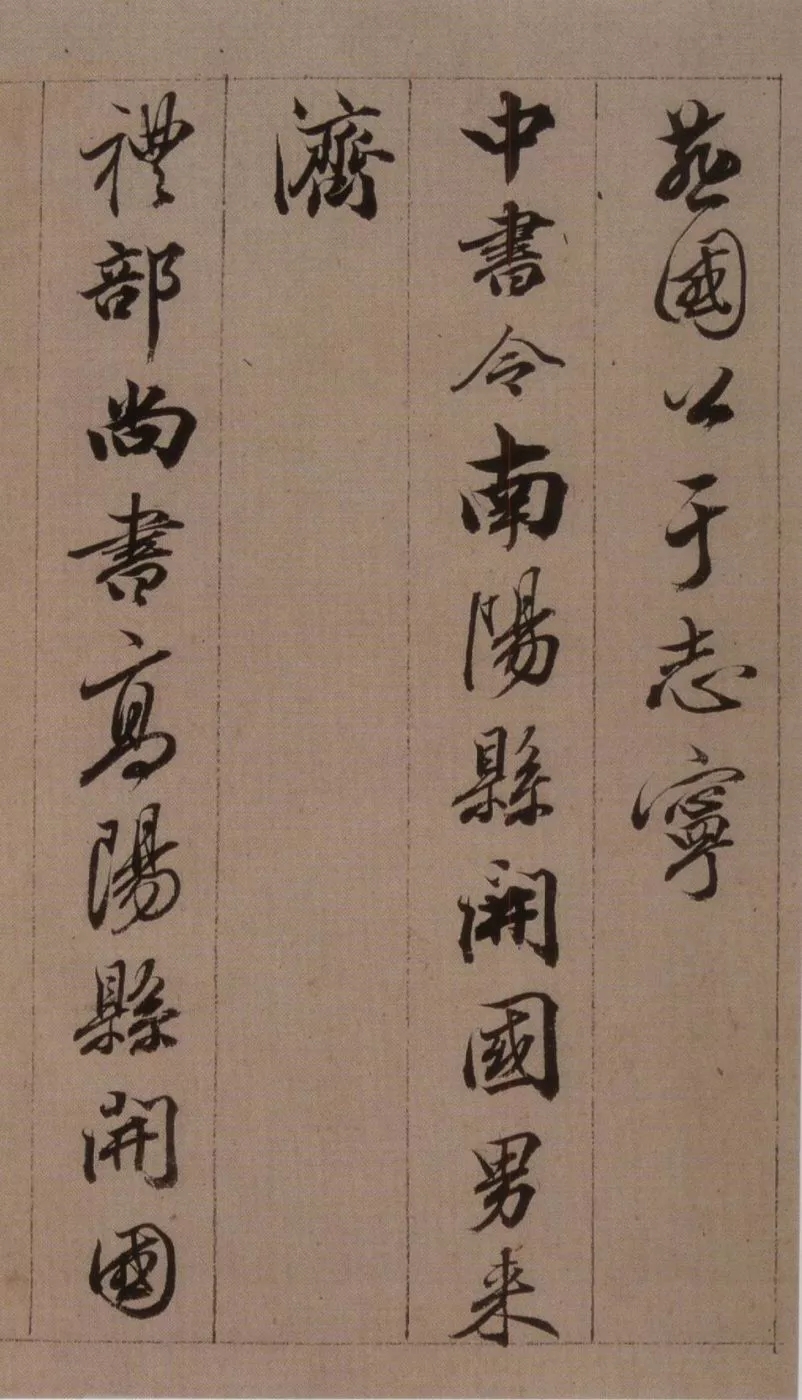 燕國公于志寧
中書令南陽縣開國男来
濟
禮部尚書高陽縣開國